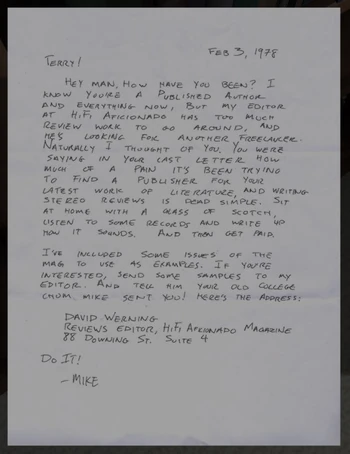 FEB 3, 1978
TERRY!
HEY MAN, HOW HAVE YOU BEEN? I
KNOW YOU'RE A PUBLISHED AUTHOR
AND EVERYTHING NOW, BUT MY EDITOR
AT HIFI AFICIONADO HAS TOO MUCH
REVIEW WORK TO GO AROUND, AND
HE'S LOOKING FOR ANOTHER FREELANCER.
NATURALLY I THOUGHT OF YOU. YOU WERE
SAYING IN YOUR LAST LETTER HOW
MUCH OF A PAIN IT'S BEEN TRYING
TO FIND A PUBLISHER FOR YOUR
LATEST WORK OF LITERATURE, AND WRITING
STEREO REVIEWS IS DEAD SIMPLE. SIT
AT HOME WITH A GLASS OF SCOTCH,
LISTEN TO SOME RECORDS AND WRITE UP
HOW IT SOUNDS. AND THEN GET PAID.
I'VE INCLUDED SOME ISSUES OF THE
MAG TO USE AS EXAMPLES. IF YOU'RE
INTERESTED, SEND SOME SAMPLES TO MY
EDITOR. AND TELL HIM YOUR OLD COLLEGE
CHUM MIKE SENT YOU! HERE'S THE ADDRESS:
DAVID WERNING
REVIEWS EDITOR, HIFI AFICIONADO MAGAZINE
88 DOWNING ST. SUITE 4
DO IT!
—MIKE